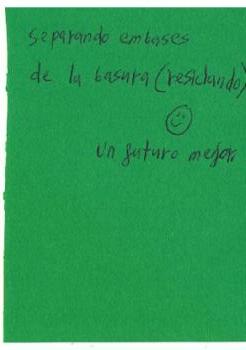 separando embases
de la basura (resiclando)
un futuro mejor